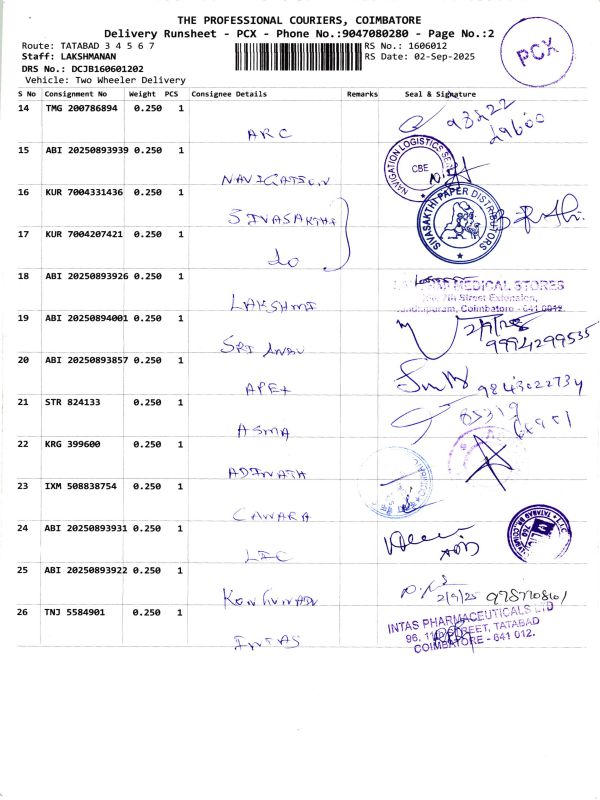 THE PROFESSIONAL COURIERS, COIMBATORE
Delivery Runsheet - PCX - Phone No.:9047080280 - Page No.:2
PCX
Route: TATABAD 3 4 5 6 7
RS No.: 1606012
Staff: LAKSHMANAN
RS Date: 02-Sep-2025
DRS No.: DCJB160601202
Vehicle: Two Wheeler Delivery
S No Consignment No Weight PCS Consignee Details Remarks Seal & Signature
14 TMG 200786894 0.250 1
ARC
93222
29600
15 ABI 20250893939 0.250 1
NAVIGATION
NAVIGATION LOGISTICS
CBE
16 KUR 7004331436 0.250 1
SIVASAKTHI
SIVASAKTHI PAPER DISTRIBUTORS
17 KUR 7004207421 0.250 1
do
18 ABI 20250893926 0.250 1
LAKSHMI
MEDICAL STORES
7th Street Extension,
Coimbatore - 641 0012.
19 ABI 20250894001 0.250 1
SRI ANBU
2/9/25
9994299535
20 ABI 20250893857 0.250 1
APEX
9843022734
21 STR 824133 0.250 1
ASMA
22 KRG 399600 0.250 1
ADINATH
23 IXM 508838754 0.250 1
CANARA
24 ABI 20250893931 0.250 1
LIC
25 ABI 20250893922 0.250 1
KONGUNADU
2/9/25
26 TNJ 5584901 0.250 1
INTAS
INTAS PHARMACEUTICALS LTD
96, 11th STREET, TATABAD
COIMBATORE - 641 012.